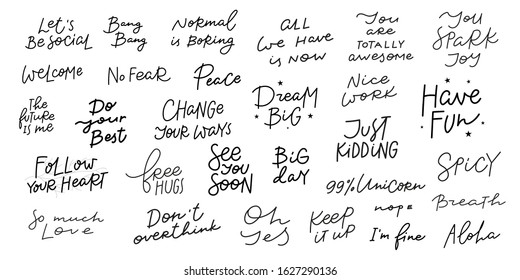 Let's
Be Social
Bang
Bang
Normal
is Boring
all
we Have
is Now
You
are
totally
awesome
You
Spark
Joy
Welcome
No Fear
Peace
Dream
Big
Nice
Work
Have
Fun
The
future
is me
Do
your
Best
Change
your ways
Just
Kidding
Follow
your Heart
free
Hugs
See
you
Soon
Big
day
99% Unicorn
Spicy
So much
Love
Don't
overthink
Oh
Yes
Keep
it up
nope
I'm fine
Breath
Aloha
shutterstock.com · 1627290136